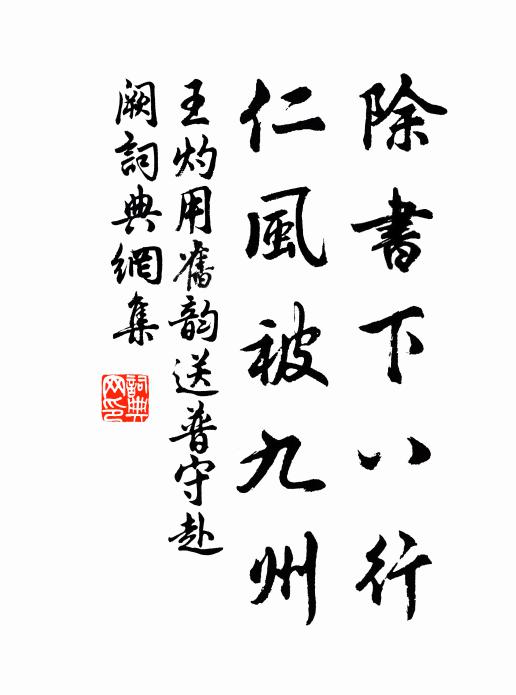 除書下八行
仁風被九州
王灼用舊韵送普守赴
闕詞典網集
詞典
网印